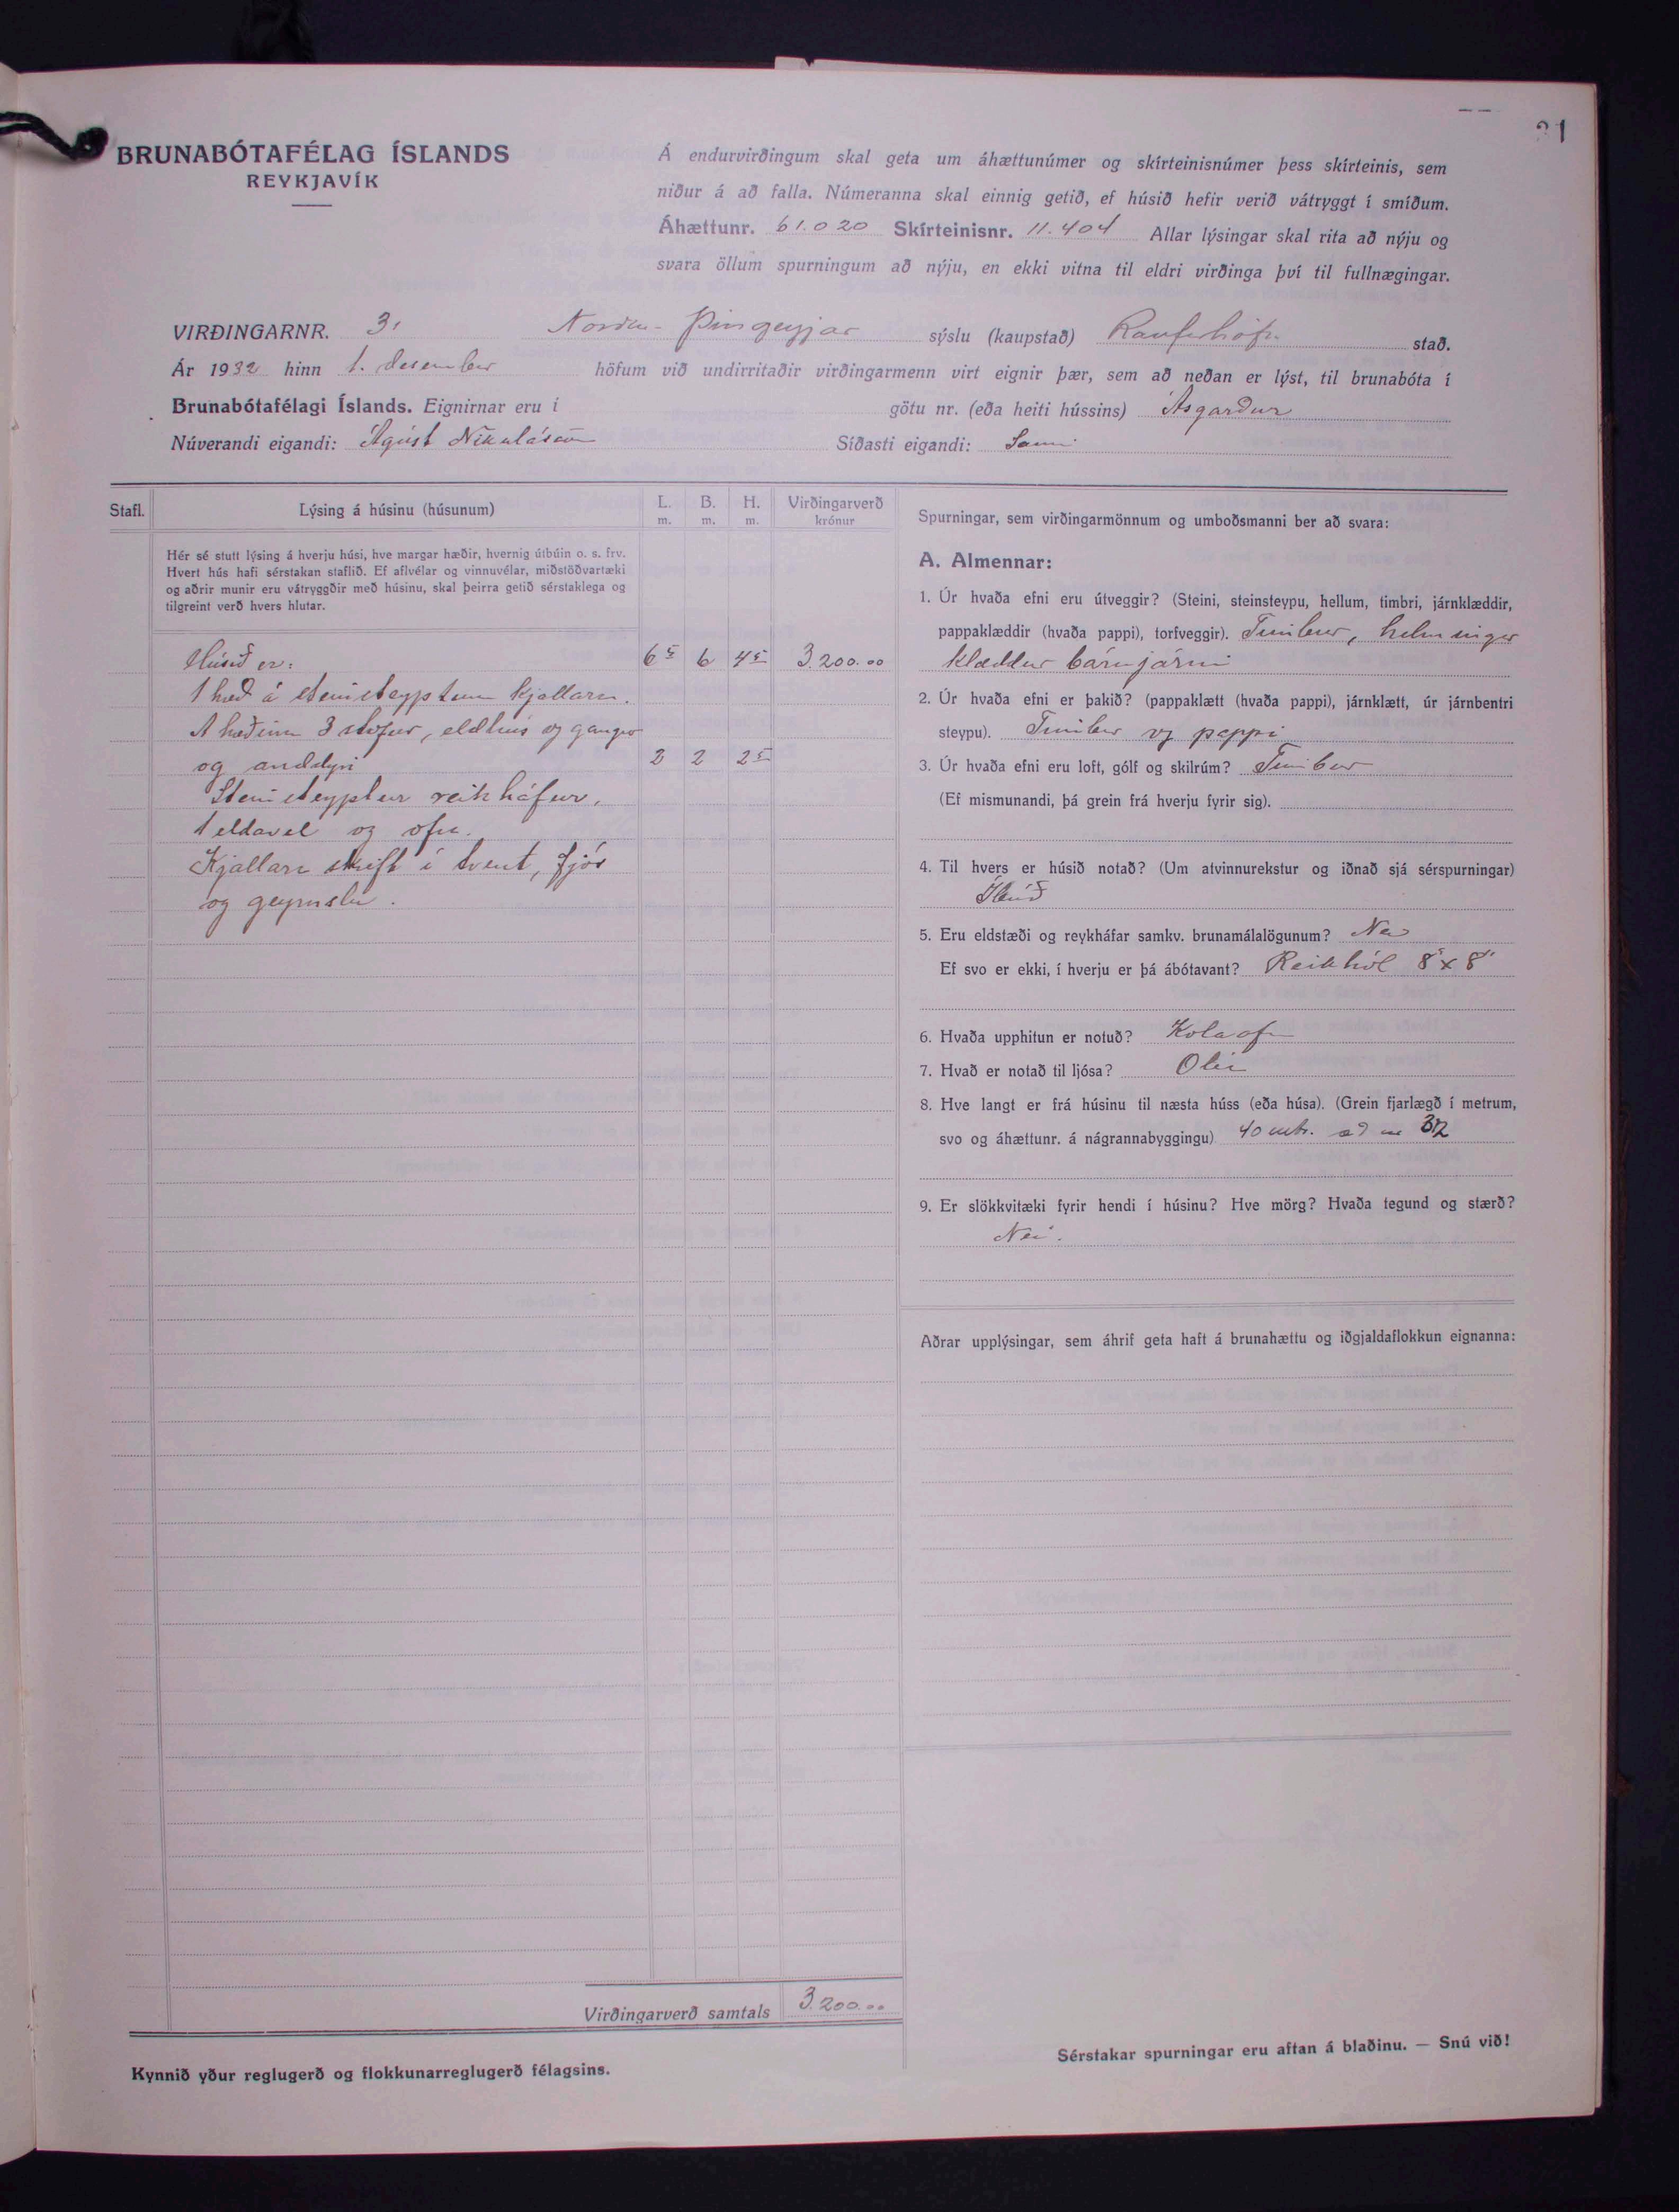 31
BRUNABÓTAFÉLAG ÍSLANDS
REYKJAVÍK
Á endurvirðingum skal geta um áhættunúmer og skírteinisnúmer þess skírteinis, sem
niður á að falla. Númeranna skal einnig getið, ef húsið hefir verið vátryggt í smíðum.
Áhættunr. 61.020 Skírteinisnr. 11.404 Allar lýsingar skal rita að nýju og
svara öllum spurningum að nýju, en ekki vitna til eldri virðinga því til fullnægingar.
VIRÐINGARNR. 31 Norður-Þingeyjar sýslu (kaupstað) Raufarhöfn stað.
Ár 1932 hinn 1. desember höfum við undirritaðir virðingarmenn virt eignir þær, sem að neðan er lýst, til brunabóta í
Brunabótafélagi Íslands. Eignirnar eru í götu nr. (eða heiti hússins) Ásgarður
Núverandi eigandi: Ágúst Nikulásson Síðasti eigandi: Sami
Stafl. Lýsing á húsinu (húsunum) L. m. B. m. H. m. Virðingarverð krónur
Hér sé stutt lýsing á hverju húsi, hve margar hæðir, hvernig útbúin o. s. frv.
Hvert hús hafi sérstakan staflið. Ef aflvélar og vinnuvélar, miðstöðvartæki
og aðrir munir eru vátryggðir með húsinu, skal þeirra getið sérstaklega og
tilgreint verð hvers hlutar.
Húsið er: 6⁵ 6 4⁵ 3.200.00
1 hæð á steinsteyptum kjallara.
Á hæðinni 3 stofur, eldhús og gangur
og anddyri 2 2 2⁵
Steinsteyptur reikháfur,
1 eldavel og ofn.
Kjallara skift í tvent, fjós
og geymslu.
Virðingarverð samtals 3.200.00
Kynnið yður reglugerð og flokkunarreglugerð félagsins.
Spurningar, sem virðingarmönnum og umboðsmanni ber að svara:
A. Almennar:
1. Úr hvaða efni eru útveggir? (Steini, steinsteypu, hellum, timbri, járnklæddir,
pappaklæddir (hvaða pappi), torfveggir). Timbur, helmingur
klæddur bárujárni
2. Úr hvaða efni er þakið? (pappaklætt (hvaða pappi), járnklætt, úr járnbentri
steypu). Timbur og pappi
3. Úr hvaða efni eru loft, gólf og skilrúm? Timbur
(Ef mismunandi, þá grein frá hverju fyrir sig).
4. Til hvers er húsið notað? (Um atvinnurekstur og iðnað sjá sérspurningar)
Íbúð
5. Eru eldstæði og reykháfar samkv. brunamálalögunum? Nei
Ef svo er ekki, í hverju er þá ábótavant? Reikhól 8"x8"
6. Hvaða upphitun er notuð? Kolaofn
7. Hvað er notað til ljósa? Olía
8. Hve langt er frá húsinu til næsta húss (eða húsa). (Grein fjarlægð í metrum,
svo og áhættunr. á nágrannabyggingu) 40 mtr. að nr 32
9. Er slökkvitæki fyrir hendi í húsinu? Hve mörg? Hvaða tegund og stærð?
Nei.
Aðrar upplýsingar, sem áhrif geta haft á brunahættu og iðgjaldaflokkun eignanna:
Sérstakar spurningar eru aftan á blaðinu. — Snú við!